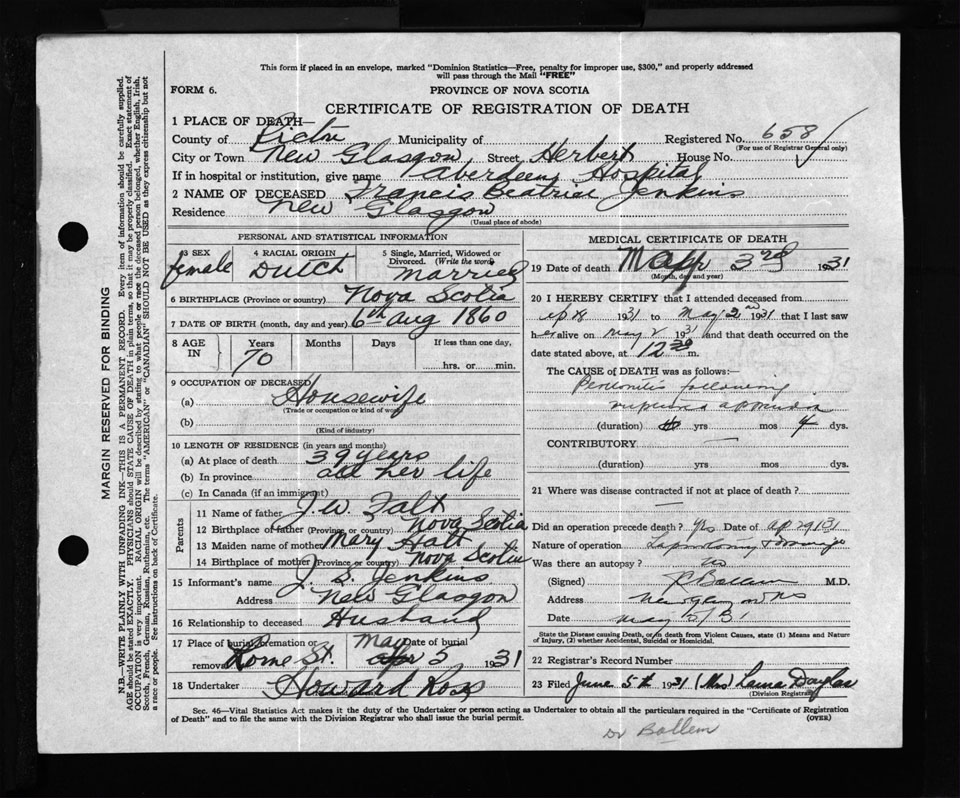 This form if placed in an envelope, marked "Dominion Statistics—Free, penalty for improper use, $300," and properly addressed
will pass through the Mail "FREE"
FORM 6.
PROVINCE OF NOVA SCOTIA
CERTIFICATE OF REGISTRATION OF DEATH
1 PLACE OF DEATH—
County of Pictou Municipality of Registered No. 658
(For use of Registrar General only)
City or Town New Glasgow Street Herbert House No.
If in hospital or institution, give name Aberdeen Hospital
2 NAME OF DECEASED Francis Beatrice Jenkins
Residence New Glasgow
(Usual place of abode)
PERSONAL AND STATISTICAL INFORMATION
3 SEX female
4 RACIAL ORIGIN Dutch
5 Single, Married, Widowed or Divorced. (Write the word) married
6 BIRTHPLACE (Province or country) Nova Scotia
7 DATE OF BIRTH (month, day and year) 6th Aug 1860
8 AGE IN Years 70 Months Days If less than one day, hrs. or min.
9 OCCUPATION OF DECEASED
(a) Housewife
(Trade or occupation or kind of work)
(b)
(Kind of industry)
10 LENGTH OF RESIDENCE (in years and months)
(a) At place of death 39 years
(b) In province all her life
(c) In Canada (if an immigrant)
Parents
11 Name of father J. W. Falt
12 Birthplace of father (Province or country) Nova Scotia
13 Maiden name of mother Mary Halt
14 Birthplace of mother (Province or country) Nova Scotia
15 Informant's name J. S. Jenkins
Address New Glasgow
16 Relationship to deceased Husband
17 Place of burial, cremation or removal Lorne St. Date of burial May 5 1931
18 Undertaker Howard Ross
MEDICAL CERTIFICATE OF DEATH
19 Date of death May 3rd 1931
(Month, day and year)
20 I HEREBY CERTIFY that I attended deceased from
1931 to May 2nd 1931 that I last saw
her alive on May 2 1931 and that death occurred on the
date stated above, at 12 30 m.
The CAUSE of DEATH was as follows:—
Peritonitis following
ruptured appendix
(duration) yrs mos 4 dys.
CONTRIBUTORY —
(duration) yrs. mos dys.
21 Where was disease contracted if not at place of death?
Did an operation precede death? Yes Date of Ap 29/31
Nature of operation Laparotomy & Drainage
Was there an autopsy? No
(Signed) Ballem M.D.
Address New Glasgow NS
Date May 5/31
State the Disease causing Death, or in death from Violent Causes, state (1) Means and Nature
of Injury, (2) whether Accidental, Suicidal or Homicidal.
22 Registrar's Record Number
23 Filed June 5th 1931 (Mrs) Laura Douglas
(Division Registrar)
Sec. 46—Vital Statistics Act makes it the duty of the Undertaker or person acting as Undertaker to obtain all the particulars required in the "Certificate of Registration
of Death" and to file the same with the Division Registrar who shall issue the burial permit.
(OVER)
Dr Ballem
MARGIN RESERVED FOR BINDING
N.B.—WRITE PLAINLY WITH UNFADING INK—THIS IS A PERMANENT RECORD. Every item of information should be carefully supplied.
AGE should be stated EXACTLY. PHYSICIANS should STATE CAUSE OF DEATH in plain terms, so that it may be properly classified. Exact statement of
OCCUPATION is very important. RACIAL ORIGIN will be described by stating to what people or race the deceased person belonged, whether English, Irish,
Scotch, French, German, Russian, Ruthenian, etc. The terms "AMERICAN" or "CANADIAN" SHOULD NOT BE USED as they express citizenship but not
a race or people. See instructions on back of Certificate.